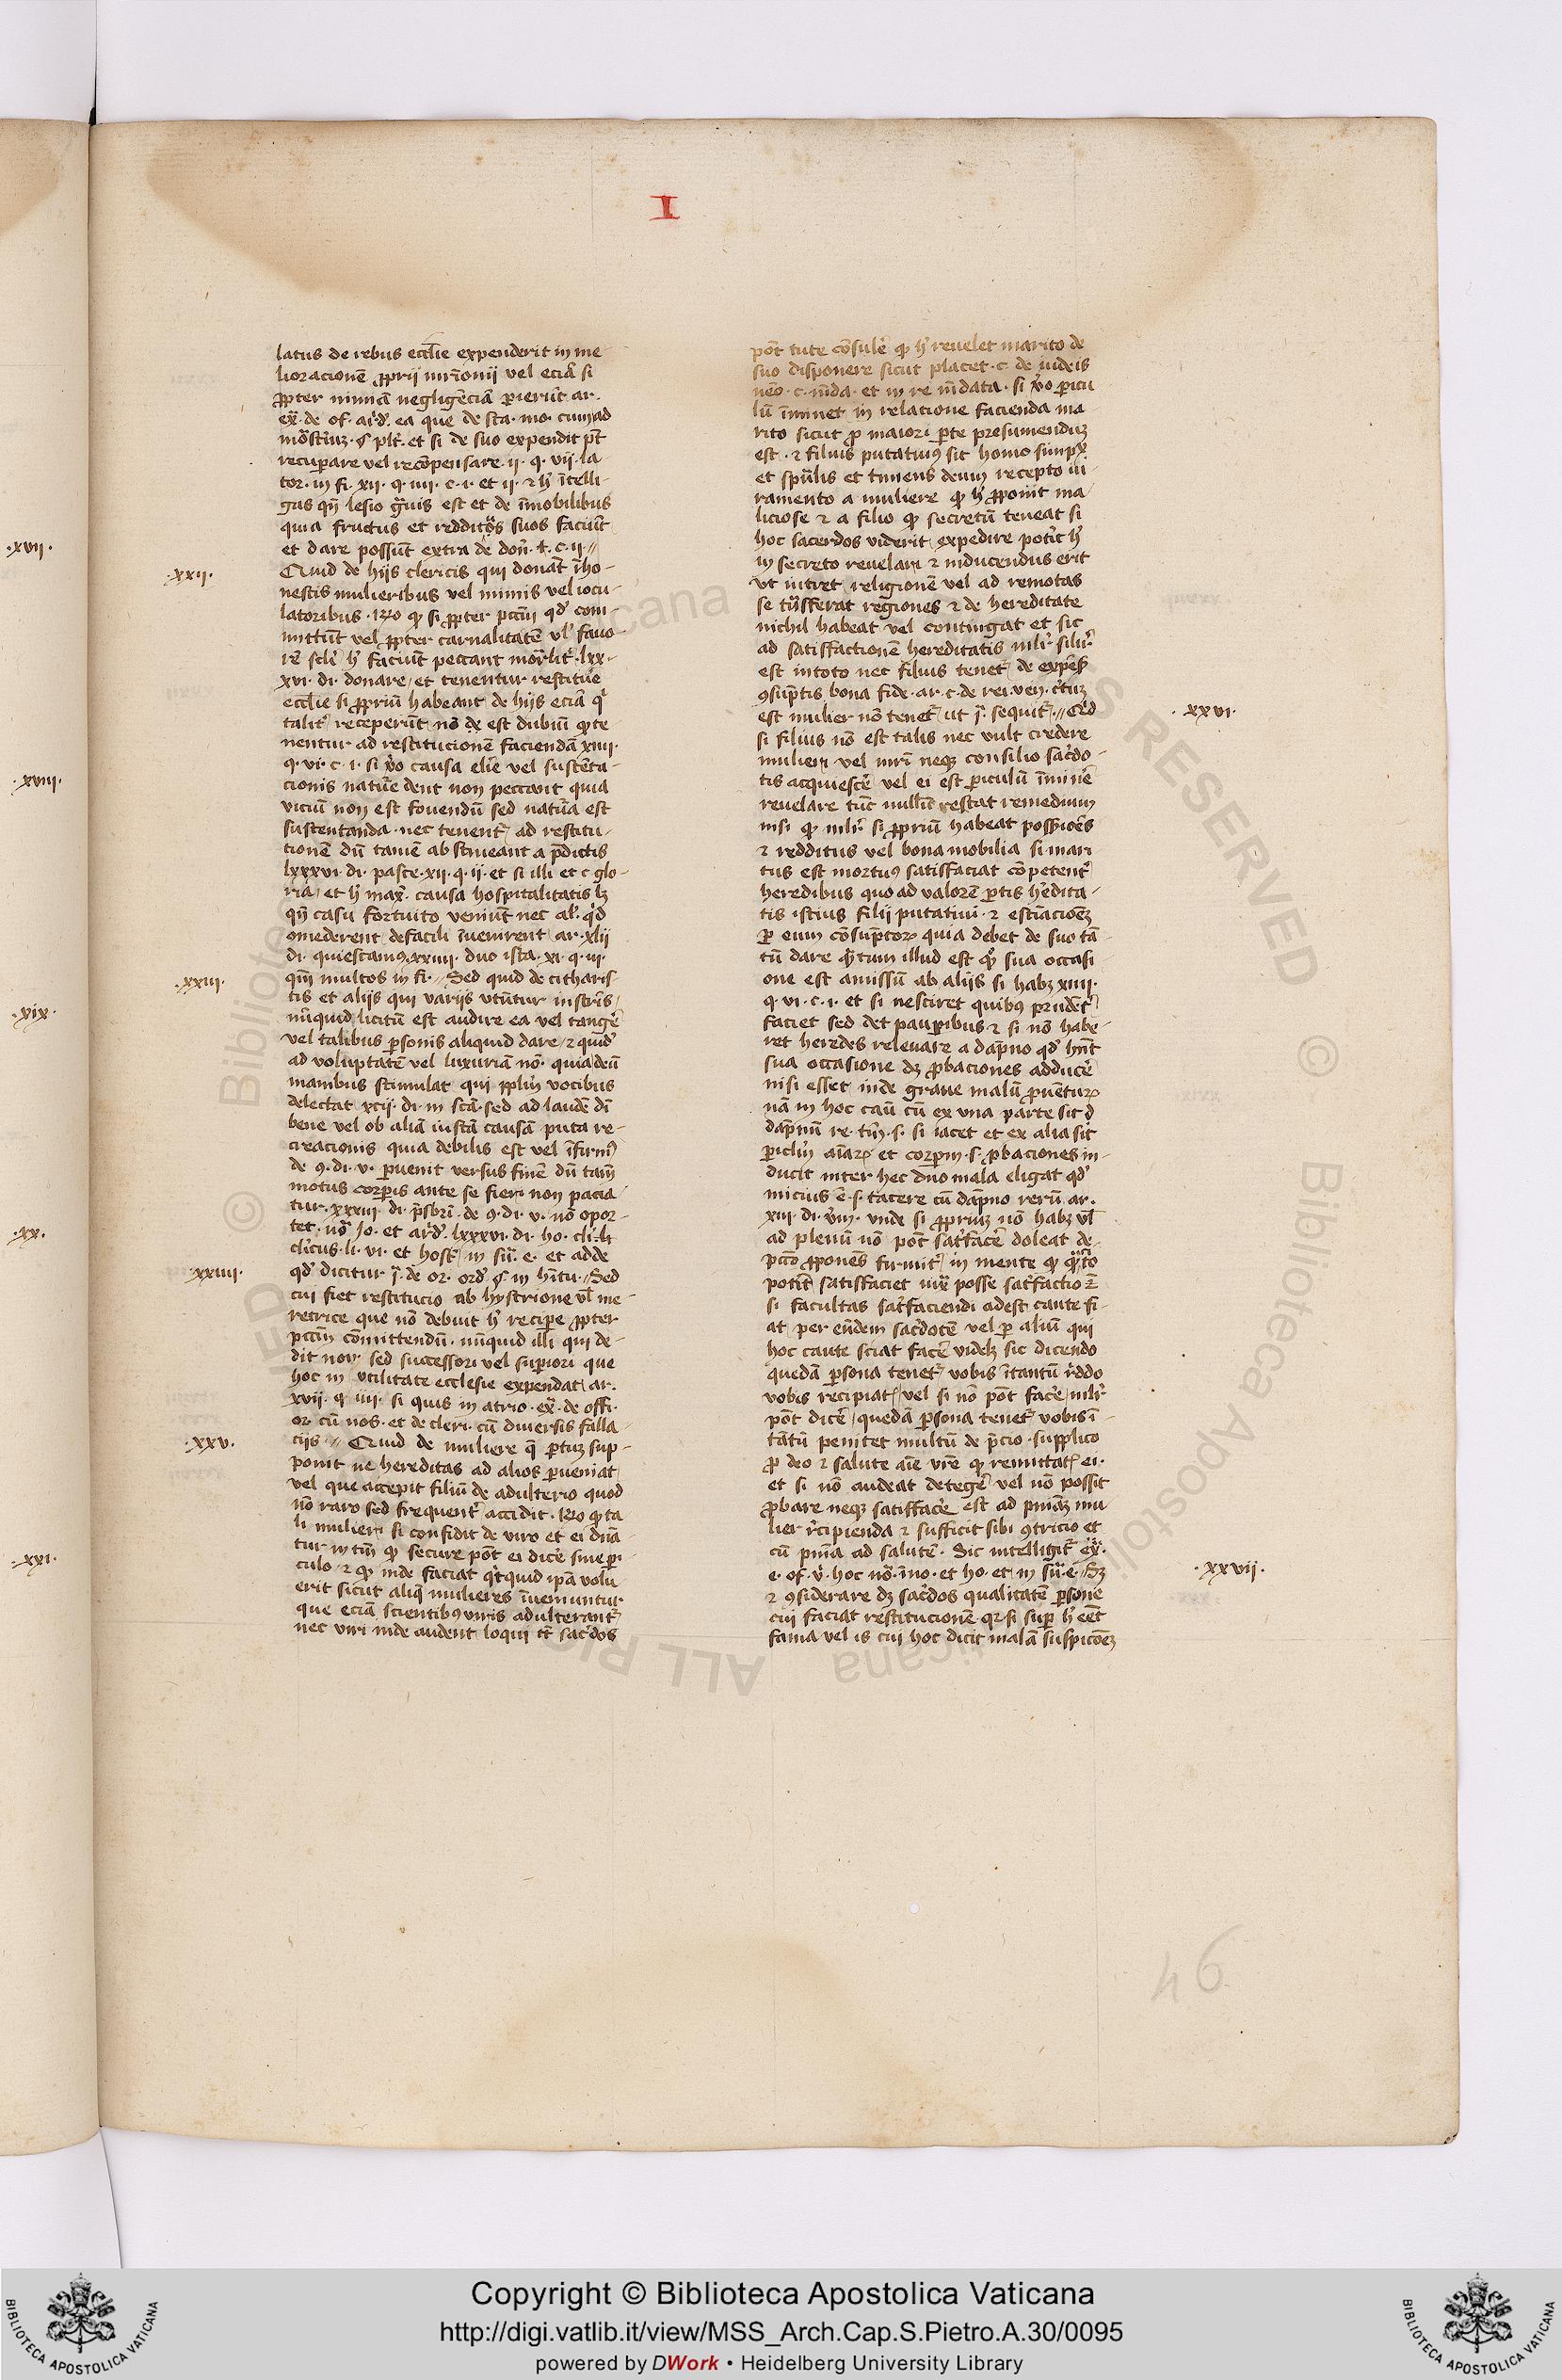 I
latus de rebus eccl̄ie expenderit in me-
lioracionē ꝓprii mr̄imonii vel eciā si
ꝓpter nimiā negligēciā perierūt ar.
ex̄. de of. ar̄d. ea que de sta. mo. cum ad
et si de suo expendit pt̄
recuperare vel recōpensare .ii. q. vii. la-
tor. in fi. xii. q. iiii. c. i. et ii. ⁊ h̄ ītelli-
gas qn̄ lesio gͣuis est et de īmobilibus
quia fructus et reddit9 suos faciūt
et dare possūt extra de don̄. t. c. ii. //
.xxii.
Quid de hijs clericis qui donāt īho-
nestis mulieribus vel mimis vel iocu-
latoribus. R̄no ꝙ si ꝓpter pctm̄ qd̄ com-
mittūt vel ꝓpter carnalitatē vl̓ favo-
rē sc̄li h̄ faciūt peccant mor̄lit̄. lxx-
xvi. di. donare et tenentur restitue
eccl̄ie si ꝓpriū habeant de hijs eciā q̄
talit̄ receperūt nō est dubiū ꝙ te-
nentur ad restitucionē faciendā xiiii.
q. vi. c. i. si v̄o causa elīe vel sustēta-
cionis natur̄e dent non peccant quia
viciū non est fovendū sed natur̄a est
sustentanda. nec tenent̄ ad restitu-
tionē dū tamē abstineant a p̄dictis
lxxxvi. di. pasce. xii. q. ii. et si illi et c glo-
ria. et h̄ max̄. causa hospitalitatis lꝫ
qn̄ casu fortuito veniūt nec al̄. q̄d
omederent de facili īvenirent ar. xlii
di. quiescamus xxiiii. duo ista. xi. q. iii.
.xxiii.
qm̄ multos in fi. // Sed quid de citharis-
tis et alijs qui varijs utūtur instr̄is
nūquid licitū est audire ea vel tangē
vel talibus personis aliquid dare ⁊ quid̄
ad voluptatē vel luxuriā nō. quia deū
manibus stimulat qui ppl̄m vocibus
delectat xcii. di. in sctā. sed ad laudē dī
bene vel ob aliā iustā causā puta re-
creacionis quia debilis est vel īfirm9
de 9. di. v. pervenit versus finē dū tam̄
motus corporis ante se fieri non pacia-
tur. xxxiii. di. p̄sbr̄i. de 9. di. v. nō opor-
tet. no. Jo. et ar̄d. lxxxvi. di. ho. cl̄i. lt
cl̄icus. li. vi. et host̄. in su. e. et adde
.xxiiii.
qd̄ dicitur j̄. de or. ord̄. § in hitu. // Sed
cui fiet restitucio ab hystrione vl̓ me-
retrice que nō debuit h̄ recipe ꝓpter
pctm̄ cōmittendū. nūquid illi qui de-
dit non. sed successori vel superiori que
hoc in utilitate ecclesie expendat ar.
xvii. q. iiii. si quis in atrio. ex̄. de offi.
or cū nos. et de cleri. cū diversis falla-
.xxv.
ciis. // Quid de muliere q̄ partuꝫ sup-
ponit ne hereditas ad alios perveniat
vel que accepit filiū de adulterio quod
nō raro sed frequent̄ accidit. R̄no ꝙ ta-
li mulieri si confidit de viro et ei dn̄a-
tur in tm̄ ꝙ secure pōt ei dicē sine peri-
culo ⁊ ꝙ inde faciat q̄cquid ipā volu
erit sicut aliq̄ mulieres īveniuntur
que eciā scientibus viris adulterant̄
nec viri inde audent loqui tc̄ sac̄dos
pōt tute cōsulē ꝙ h̄ revelet marito de
suo disponere sicut placet. c. de iudeis
nēo. c. mā̄da. et in re mā̄data. si v̄o pericu
lū īminet in relacione facienda ma
rito sicut ꝓ maiori parte presumenduꝫ
est. ⁊ filius putativ9 sit homo simpx̄
et spūlis et timens deum recepto iu-
ramento a muliere ꝙ h̄ ꝓponit ma
liciose ⁊ a filio ꝙ secretū teneat si
hoc sacerdos viderit expedire potit̄ h̄
in secreto revelari ⁊ inducendus erit
ut intret religionē vel ad remotas
se tͣsferat regiones ⁊ de hereditate
nichil habeat vel contingat et sic
ad satisfactionē hereditatis mlr̄ silr̄
est in toto nec filius tenet̄ de expēs
9sūptis bona fide. ar. c. de rei. ven. certuꝫ
.xxvi.
est mulier nō tenet̄ ut j̄. sequit̄. // Qd̄
si filius nō est talis nec vult credere
mulieri vel mr̄i neqꝫ consilio sac̄do-
tis acquiescē vel ei est periculū īminē
revelare tūc nullū restat remedium
nisi ꝙ mlr̄ si ꝓpriū habeat possessiōes
⁊ redditus vel bona mobilia si mari
tus est mortu9 satisfaciat cōpetent̄
heredibus quo ad valorē partis heredita-
tis istius filij putativi. ⁊ estīacionē
per eum cōsūptorꝫ quia debet de suo tā
tū dare qͣtum illud est qd̄ sua occasi-
one est amissū ab alijs si habꝫ xiiii.
q. vi. c. i. et si nesciret quibus prudēt̄
faciet sed det pauperibus ⁊ si nō habe-
ret heredes relevare a dāpno qd̄ hn̄t
sua occasione dꝫ ꝓbaciones adducē
nisi esset inde grave malū ꝓventurꝫ
nā in hoc cāu cū ex una parte sit
dāpnū re. tm̄. s. si tacet et ex alia sit
pericl̄m aīarꝫ et corporum. s. ꝓbaciones in-
ducit inter hec duo mala eligat qd̄
micius ē. s. tacere cū dāpno rerū ar.
xiii. di. unde si ꝓpriuꝫ nō habꝫ vl̓
ad plenū nō pōt satͥfacē doleat de
pctō ꝓponēs firmit̄ in mente ꝙ qͣcito
potit̄ satisfaciet satͥfactio ē
si facultas satͥfaciendi adest caute fi-
at per eūdem sac̄dotē vel per aliū qui
hoc caute sciat facē videlꝫ sic dicendo
quedā persona tenet̄ vobis ī tantū r̄ddo
vobis recipiat̄ vel si nō pōt facē mlr̄
pōt dicē quedā persona tenet̄ vobis ī
tātū penitet multū de p̄cio. supplico
ꝓ deo ⁊ salute aīe vr̄e ꝙ remittat̄ ei.
et si nō audeat detegē vel nō possit
ꝓbare neqꝫ satisfacē est ad pnīaꝫ mu
lier r̄cipienda ⁊ sufficit sibi 9tricio et
cū pnīa ad salutē. Sic intelligit̄ ex̄.
.xxvii.
e. of. v̄. hoc nō. īno. et ho. et in su. e. // Sꝫ
⁊ 9siderare dꝫ sac̄dos qualitatē persone
cui faciat restitucionē qr si super h̄ eēt
fama vel is cui hoc dicit malā suspicōeꝫ
46
.xvii.
.xviii.
.xix.
.xx.
.xxi.
Copyright © Biblioteca Apostolica Vaticana
http://digi.vatlib.it/view/MSS_Arch.Cap.S.Pietro.A.30/0095
powered by DWork • Heidelberg University Library
BIBLIOTECA APOSTOLICA VATICANA
BIBLIOTECA APOSTOLICA VATICANA